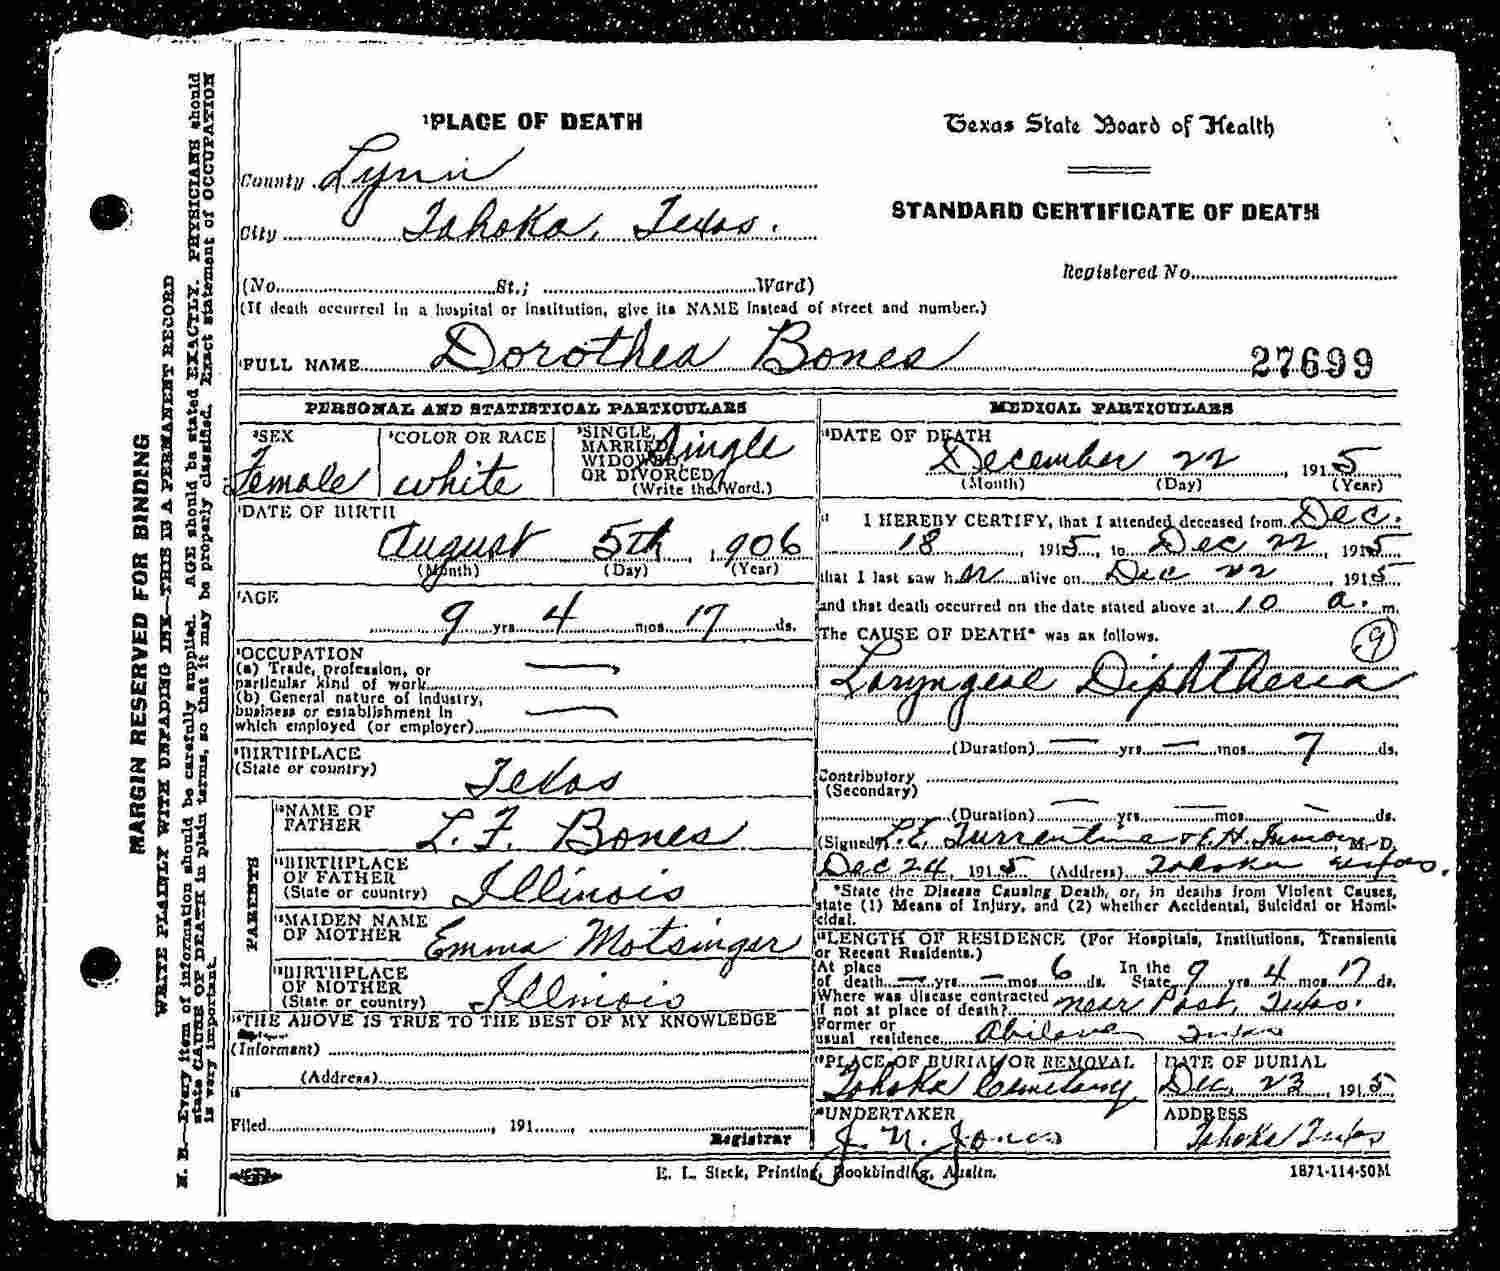 ¹PLACE OF DEATH
County Lynn
City Tahoka, Texas.
(No. St.; Ward)
(If death occurred in a hospital or institution, give its NAME instead of street and number.)
Texas State Board of Health
STANDARD CERTIFICATE OF DEATH
Registered No.
FULL NAME Dorothea Bones
27699
PERSONAL AND STATISTICAL PARTICULARS
SEX
Female
COLOR OR RACE
white
SINGLE,
MARRIED
WIDOWED
OR DIVORCED
(Write the Word.)
Single
DATE OF BIRTH
August 5th, 1906
(Month) (Day) (Year)
AGE
9 yrs 4 mos 17 ds.
OCCUPATION
(a) Trade, profession, or
particular kind of work
(b) General nature of industry,
business or establishment in
which employed (or employer)
BIRTHPLACE
(State or country)
Texas
PARENTS
NAME OF
FATHER
L. F. Bones
BIRTHPLACE
OF FATHER
(State or country)
Illinois
MAIDEN NAME
OF MOTHER
Emma Motsinger
BIRTHPLACE
OF MOTHER
(State or country)
Illinois
THE ABOVE IS TRUE TO THE BEST OF MY KNOWLEDGE
(Informant)
(Address)
Filed , 191 ,
Registrar
MEDICAL PARTICULARS
DATE OF DEATH
December 22, 1915
(Month) (Day) (Year)
I HEREBY CERTIFY, that I attended deceased from Dec.
18, 1915, to Dec 22, 1915
that I last saw her alive on Dec 22, 1915
and that death occurred on the date stated above at 10 a. m.
The CAUSE OF DEATH* was as follows.
9
Laryngeal Diphtheria
(Duration) — yrs — mos 7 ds.
Contributory
(Secondary)
(Duration) — yrs — mos — ds.
(Signed) L. E. Turrentine & M. D.
Dec 24, 1915 (Address) Tahoka Texas.
*State the Disease Causing Death, or, in deaths from Violent Causes,
state (1) Means of Injury, and (2) whether Accidental, Suicidal or Homi-
cidal.
LENGTH OF RESIDENCE (For Hospitals, Institutions, Transients
or Recent Residents.)
At place
of death — yrs — mos 6 ds. In the
State 9 yrs 4 mos 17 ds.
Where was disease contracted
if not at place of death? near Post, Texas.
Former or
usual residence Abilene Texas
PLACE OF BURIAL OR REMOVAL
Tahoka Cemetary
DATE OF BURIAL
Dec. 23, 1915
UNDERTAKER
J. N. Jones
ADDRESS
Tahoka Texas
E. L. Steck, Printing, Bookbinding, Austin.
1871-114-50M
MARGIN RESERVED FOR BINDING
WRITE PLAINLY WITH UNFADING INK—THIS IS A PERMANENT RECORD
N. B.—Every item of information should be carefully supplied. AGE should be stated EXACTLY. PHYSICIANS should
state CAUSE OF DEATH in plain terms, so that it may be properly classified. Exact statement of OCCUPATION
is very important.